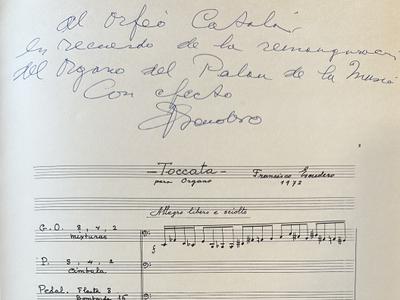 al Orfeó Català,
en recuerdo de la reinauguracion
del Organo del Palau de la Musica
Con afecto
- Toccata -
para Organo
Francisco Escudero
1972
Allegro libero e sciolto
G.O. 8, 4, 2
mixturas
f
P. 8, 4, 2
Cimbala
Pedal. Flauta 8
Bombarda 16